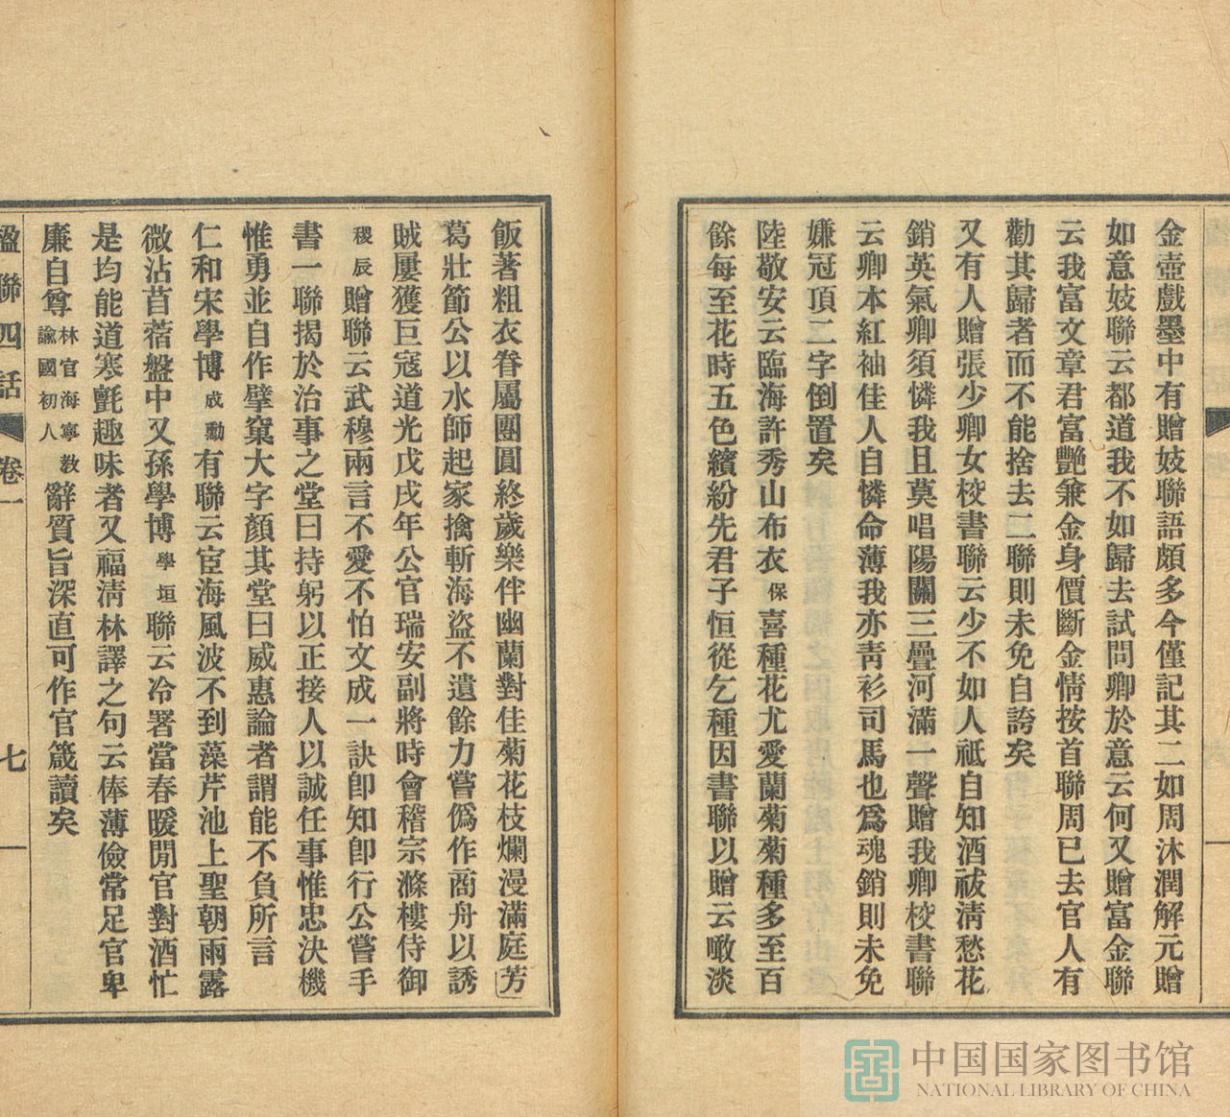 金壺戲墨中有贈妓聯語頗多今僅記其二如周沐潤解元贈
如意妓聯云都道我不如歸去試問卿於意云何又贈富金聯
云我富文章君富艷兼金身價斷金情按首聯周已去官人有
勸其歸者而不能捨去二聯則未免自誇矣
又有人贈張少卿女校書聯云少不如人祗自知酒祓清愁花
銷英氣卿須憐我且莫唱陽關三疊河滿一聲贈我卿校書聯
云卿本紅袖佳人自憐命薄我亦靑衫司馬也爲魂銷則未免
嫌冠頂二字倒置矣
陸敬安云臨海許秀山布衣保喜種花尤愛蘭菊菊種多至百
餘每至花時五色繽紛先君子恒從乞種因書聯以贈云噉淡
飯著粗衣眷屬團圓終歲樂伴幽蘭對佳菊花枝爛漫滿庭芳
葛壯節公以水師起家擒斬海盜不遺餘力嘗僞作商舟以誘
賊屢獲巨寇道光戊戌年公官瑞安副將時會稽宗滌樓侍御
稷辰贈聯云武穆兩言不愛不怕文成一訣卽知卽行公嘗手
書一聯揭於治事之堂曰持躬以正接人以誠任事惟忠決機
惟勇並自作擘窠大字顏其堂曰威惠論者謂能不負所言
仁和宋學博成勳有聯云宦海風波不到藻芹池上聖朝雨露
微沾苜蓿盤中又孫學博學垣聯云冷署當春暖閒官對酒忙
是均能道寒氈趣味者又福淸林譯之句云俸薄儉常足官卑
廉自尊林官海寧教諭國初人辭質旨深直可作官箴讀矣
楹聯四話 卷一 七
中国国家图书馆
NATIONAL LIBRARY OF CHINA